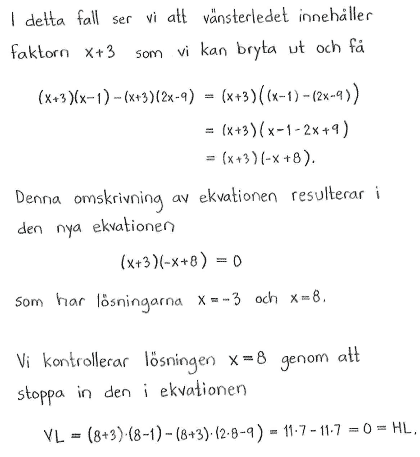 I detta fall ser vi att vänsterledet innehåller
faktorn x+3 som vi kan bryta ut och få
(x+3)(x-1)-(x+3)(2x-9) = (x+3)((x-1)-(2x-9))
= (x+3)(x-1-2x+9)
= (x+3)(-x+8).
Denna omskrivning av ekvationen resulterar i
den nya ekvationen
(x+3)(-x+8) = 0
som har lösningarna x=-3 och x=8.
Vi kontrollerar lösningen x=8 genom att
stoppa in den i ekvationen
VL = (8+3)·(8-1)-(8+3)·(2·8-9) = 11·7-11·7 = 0 = HL.